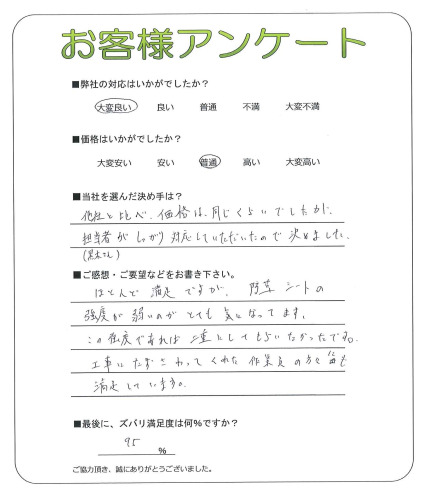 お客様アンケート
■弊社の対応はいかがでしたか?
大変良い 良い 普通 不満 大変不満
■価格はいかがでしたか?
大変安い 安い 普通 高い 大変高い
■当社を選んだ決め手は?
他社と比べ、価格は、同じくらいでしたが、
担当者がしっかり対応していただいたので決めました。
(黒木さん)
■ご感想・ご要望などをお書き下さい。
ほとんど満足ですが、防草シートの
強度が弱いのがとても気になってます。
この強度であれば二重にしてもらいたかったです。
工事にたずさわってくれた作業員の方々も
満足しています。
■最後に、ズバリ満足度は何%ですか?
95 %
ご協力頂き、誠にありがとうございました。